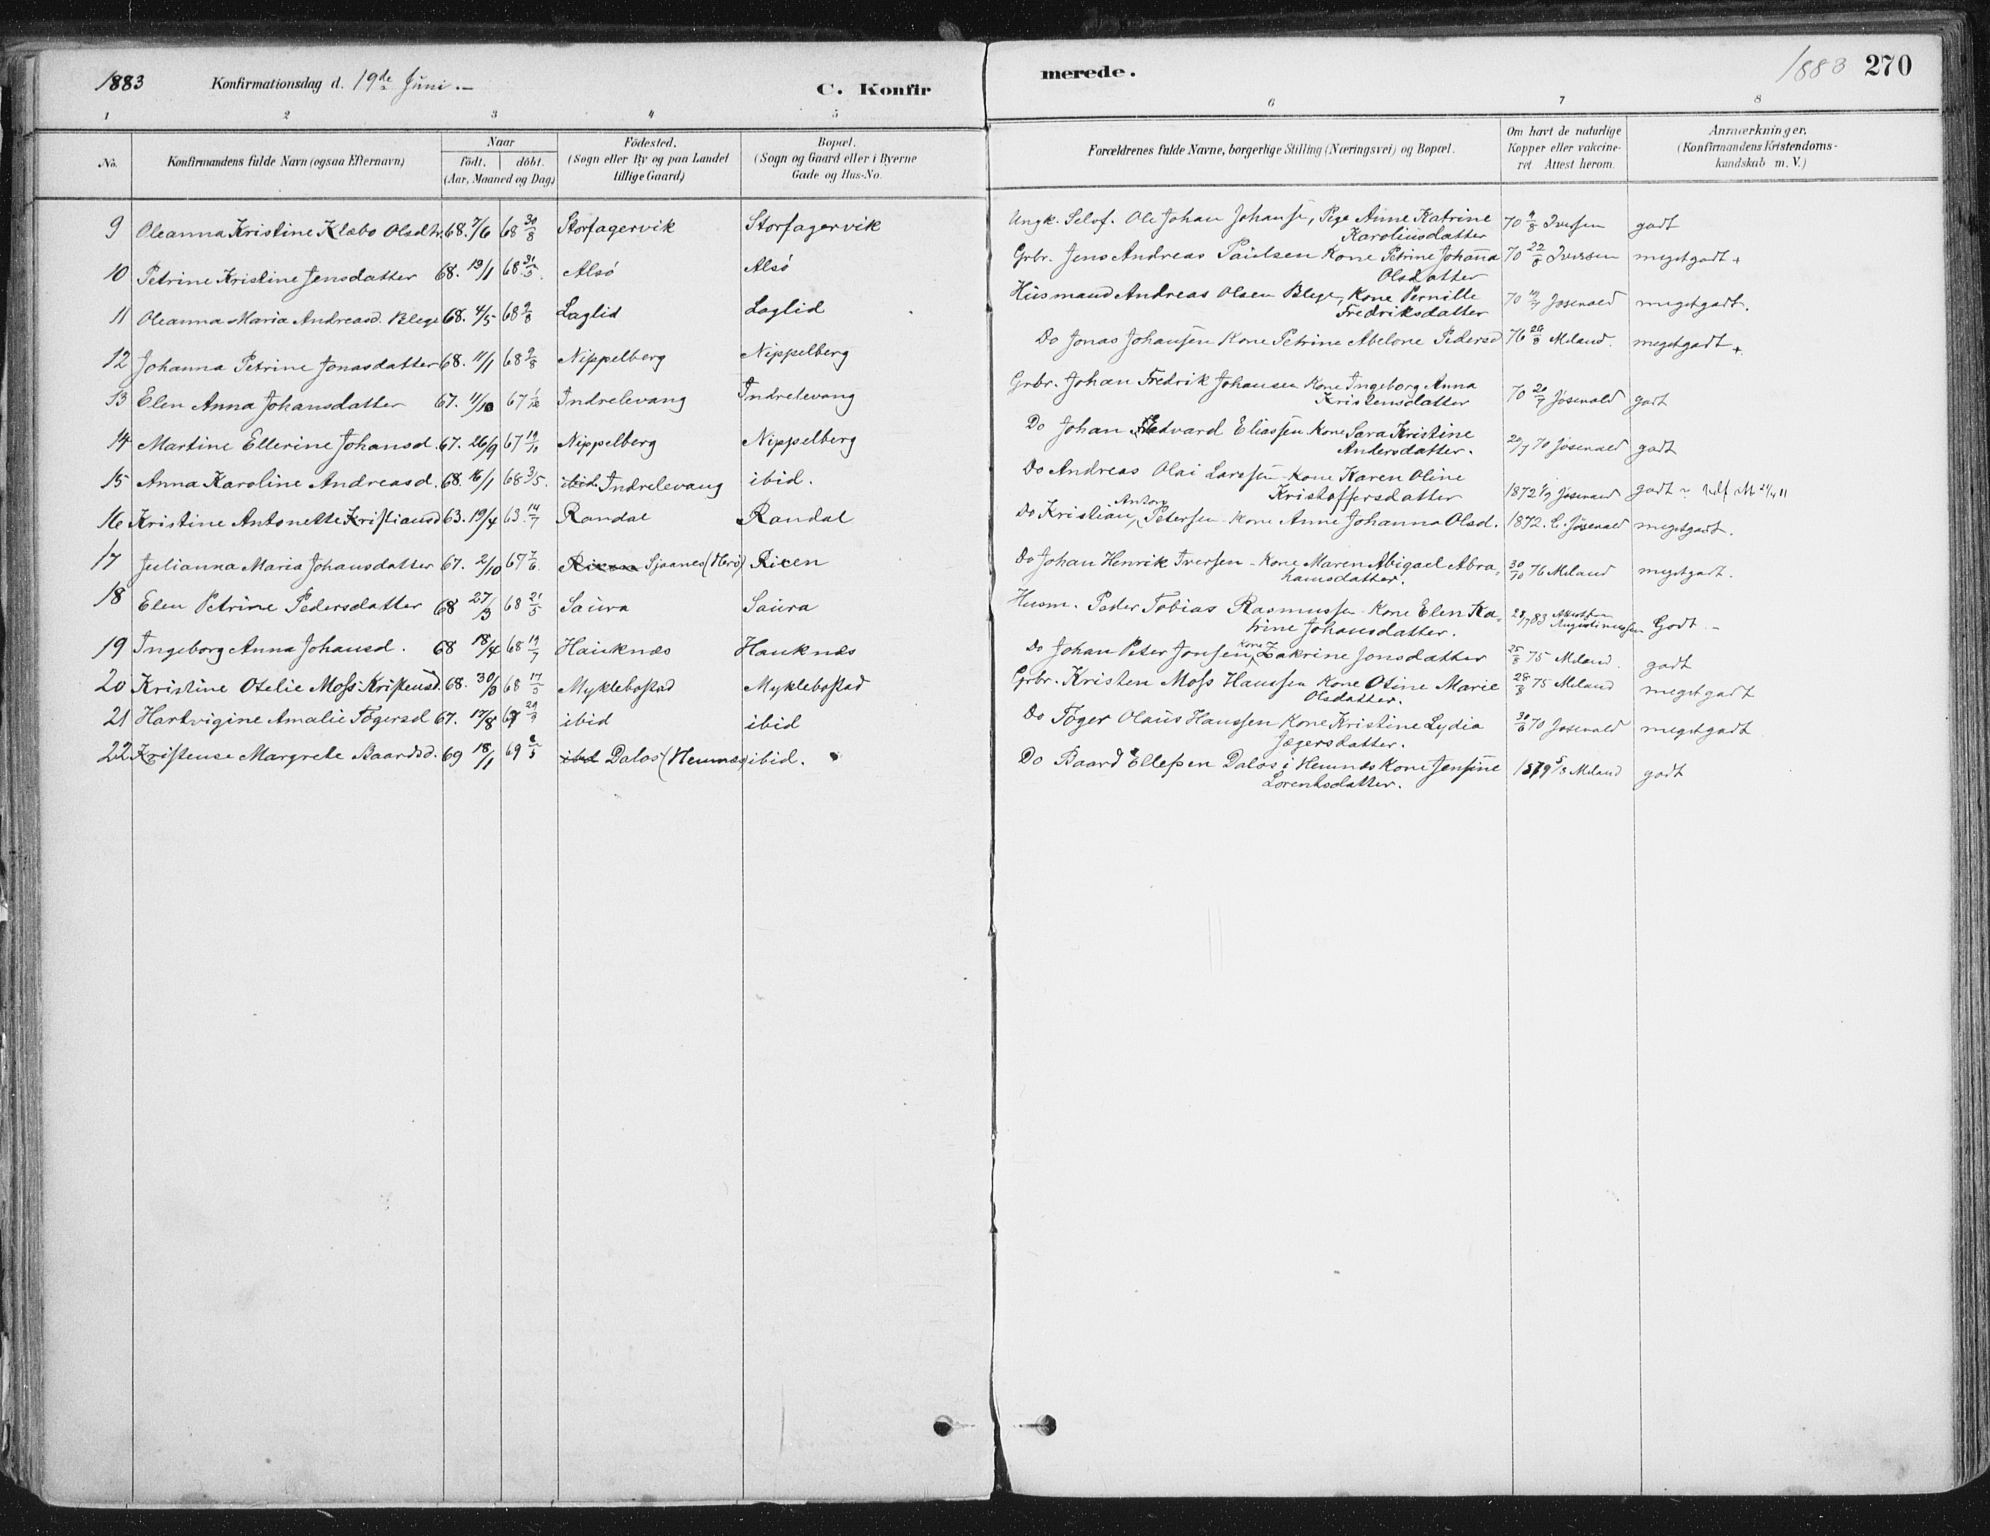 1883 Konfirmationsdag d. 19de Juni.– C. Konfirmerede. 1883 270
1 2 3 4 5 6 7 8
No. Konfirmandens fulde Navn (ogsaa Efternavn) Naar födt. döbt. (Aar, Maaned og Dag) Födested. (Sogn eller By og paa Landet tillige Gaard) Bopæl. (Sogn og Gaard eller i Byerne Gade og Hus-No. Forældrenes fulde Navne, borgerlige Stilling (Næringsvei) og Bopæl. Om havt de naturlige Kopper eller vakcineret Attest herom. Anmærkninger. (Konfirmandens Kristendomskundskab m. V.)
9 Oleanna Kristine Klæbo Olsdtr. 68. 7/6 68 30/8 Storfagervik Storfagervik Ungk. Selvf. Ole Johan Johans, Pige Anne Katrine Karoliusdatter 70 9/8 Iversen godt
10 Petrine Kristine Jensdatter 68. 13/1 68 31/5. Alsö Alsö Grbr. Jens Andreas Paulsen Kone Petrine Johanna Olsdatter 70 22/8 Iversen megetgodt +
11 Oleanna Maria Andreasd. Blege 68. 4/5 68 2/8 Laglid Laglid Husmand Andreas Olsen Blege, Kone Pernille Fredriksdatter 70 Josevald megetgodt.
12 Johanna Petrine Jonasdatter 68. 11/1 68 2/8 Nippelberg Nippelberg Do Jonas Johansen Kone Petrine Abelone Pedersd 76 28/8 Meland. megetgodt +
13 Elen Anna Johansdatter 67. 11/10 67 1/12 Indrelevang Indrelevang Grbr. Johan Fredrik Johansen Kone Ingeborg Anna Kristensdatter 70 20/7 Josevald godt
14 Martine Ellerine Johansd. 67. 26/9 67 19/10 Nippelberg Nippelberg Do Johan Edvard Eliassen Kone Sara Kristine Andersdatter. 20/7 70 Josevald godt
15 Anna Karoline Andreasd. 68. 16/1 68 3/5. ibid. Indrelevang ibid. Do Andreas Olai Larssen Kone Karen Oline Kristoffersdatter 1872 Josevald godt
16 Kristine Antonette Kristiansd 63. 19/4 63. 14/7 Randal Randal Do Kristian Anton Petersen Kone Anne Johanna Olsd. 1872. Josevald megetgodt.
17 Julianna Maria Johansdatter 67. 2/10 67 7/6 Ricen Sjaanes (Herö) Ricen Do Johan Henrik Iversen – Kone Maren Abigael Abrahamsdatter. 30/10 76 Meland megetgodt.
18 Elen Petrine Pedersdatter 68 27/3 68 21/5 Saura Saura Husm. Peder Tobias Rasmussen Kone Elen Katrine Johansdatter. 28/7 83 Augustinussen Godt.–
19 Ingeborg Anna Johansd. 68 18/4 68 19/7 Hauknæs Hauknæs Do Johan Peter Jonsen Kone Zakrine Jonsdatter 25/8 75 Meland. godt
20 Kristine Otelie Moss Kristensd. 68. 30/3 68 17/5 Myklebostad Myklebostad Grbr. Kristen Moss Hanssen Kone Otine Marie Olsdatter. 28/8 75 Meland megetgodt
21 Hartvigine Amalie Tögersd 67. 17/8 67 29/9 ibid ibid Do Töger Olaus Hanssen Kone Kristine Lydia Jægersdatter. 30/6 70 Josevald megetgodt
22 Kristense Margrete Baardsd. 69 18/1 69 6/5 ibid Dalos (Hemnæs) ibid. Do Baard Ellefsen Dalos i Hemnæs Kone Jensine Lorentsdatter. 1879 5/8 Meland godt